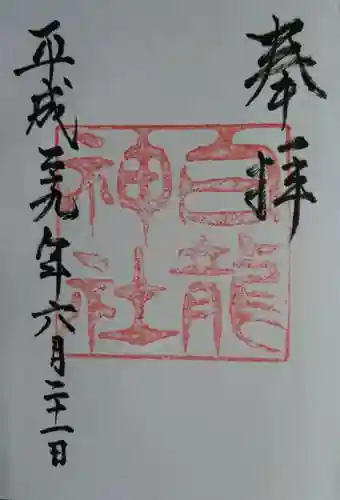 奉拝
白龍
神社
平成二十九年六月二十一日